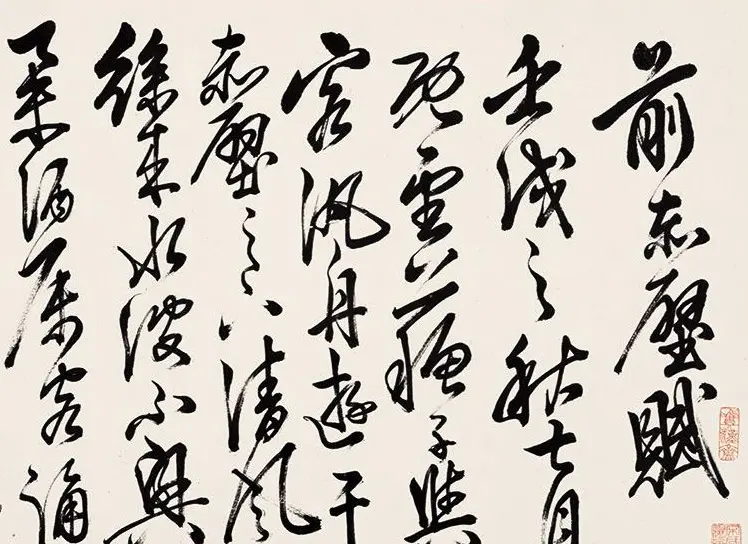 前赤壁賦
壬戌之秋七月
既望蘇子與
客汎舟遊于
赤壁之下清風
徐來水波不興
舉酒属客誦